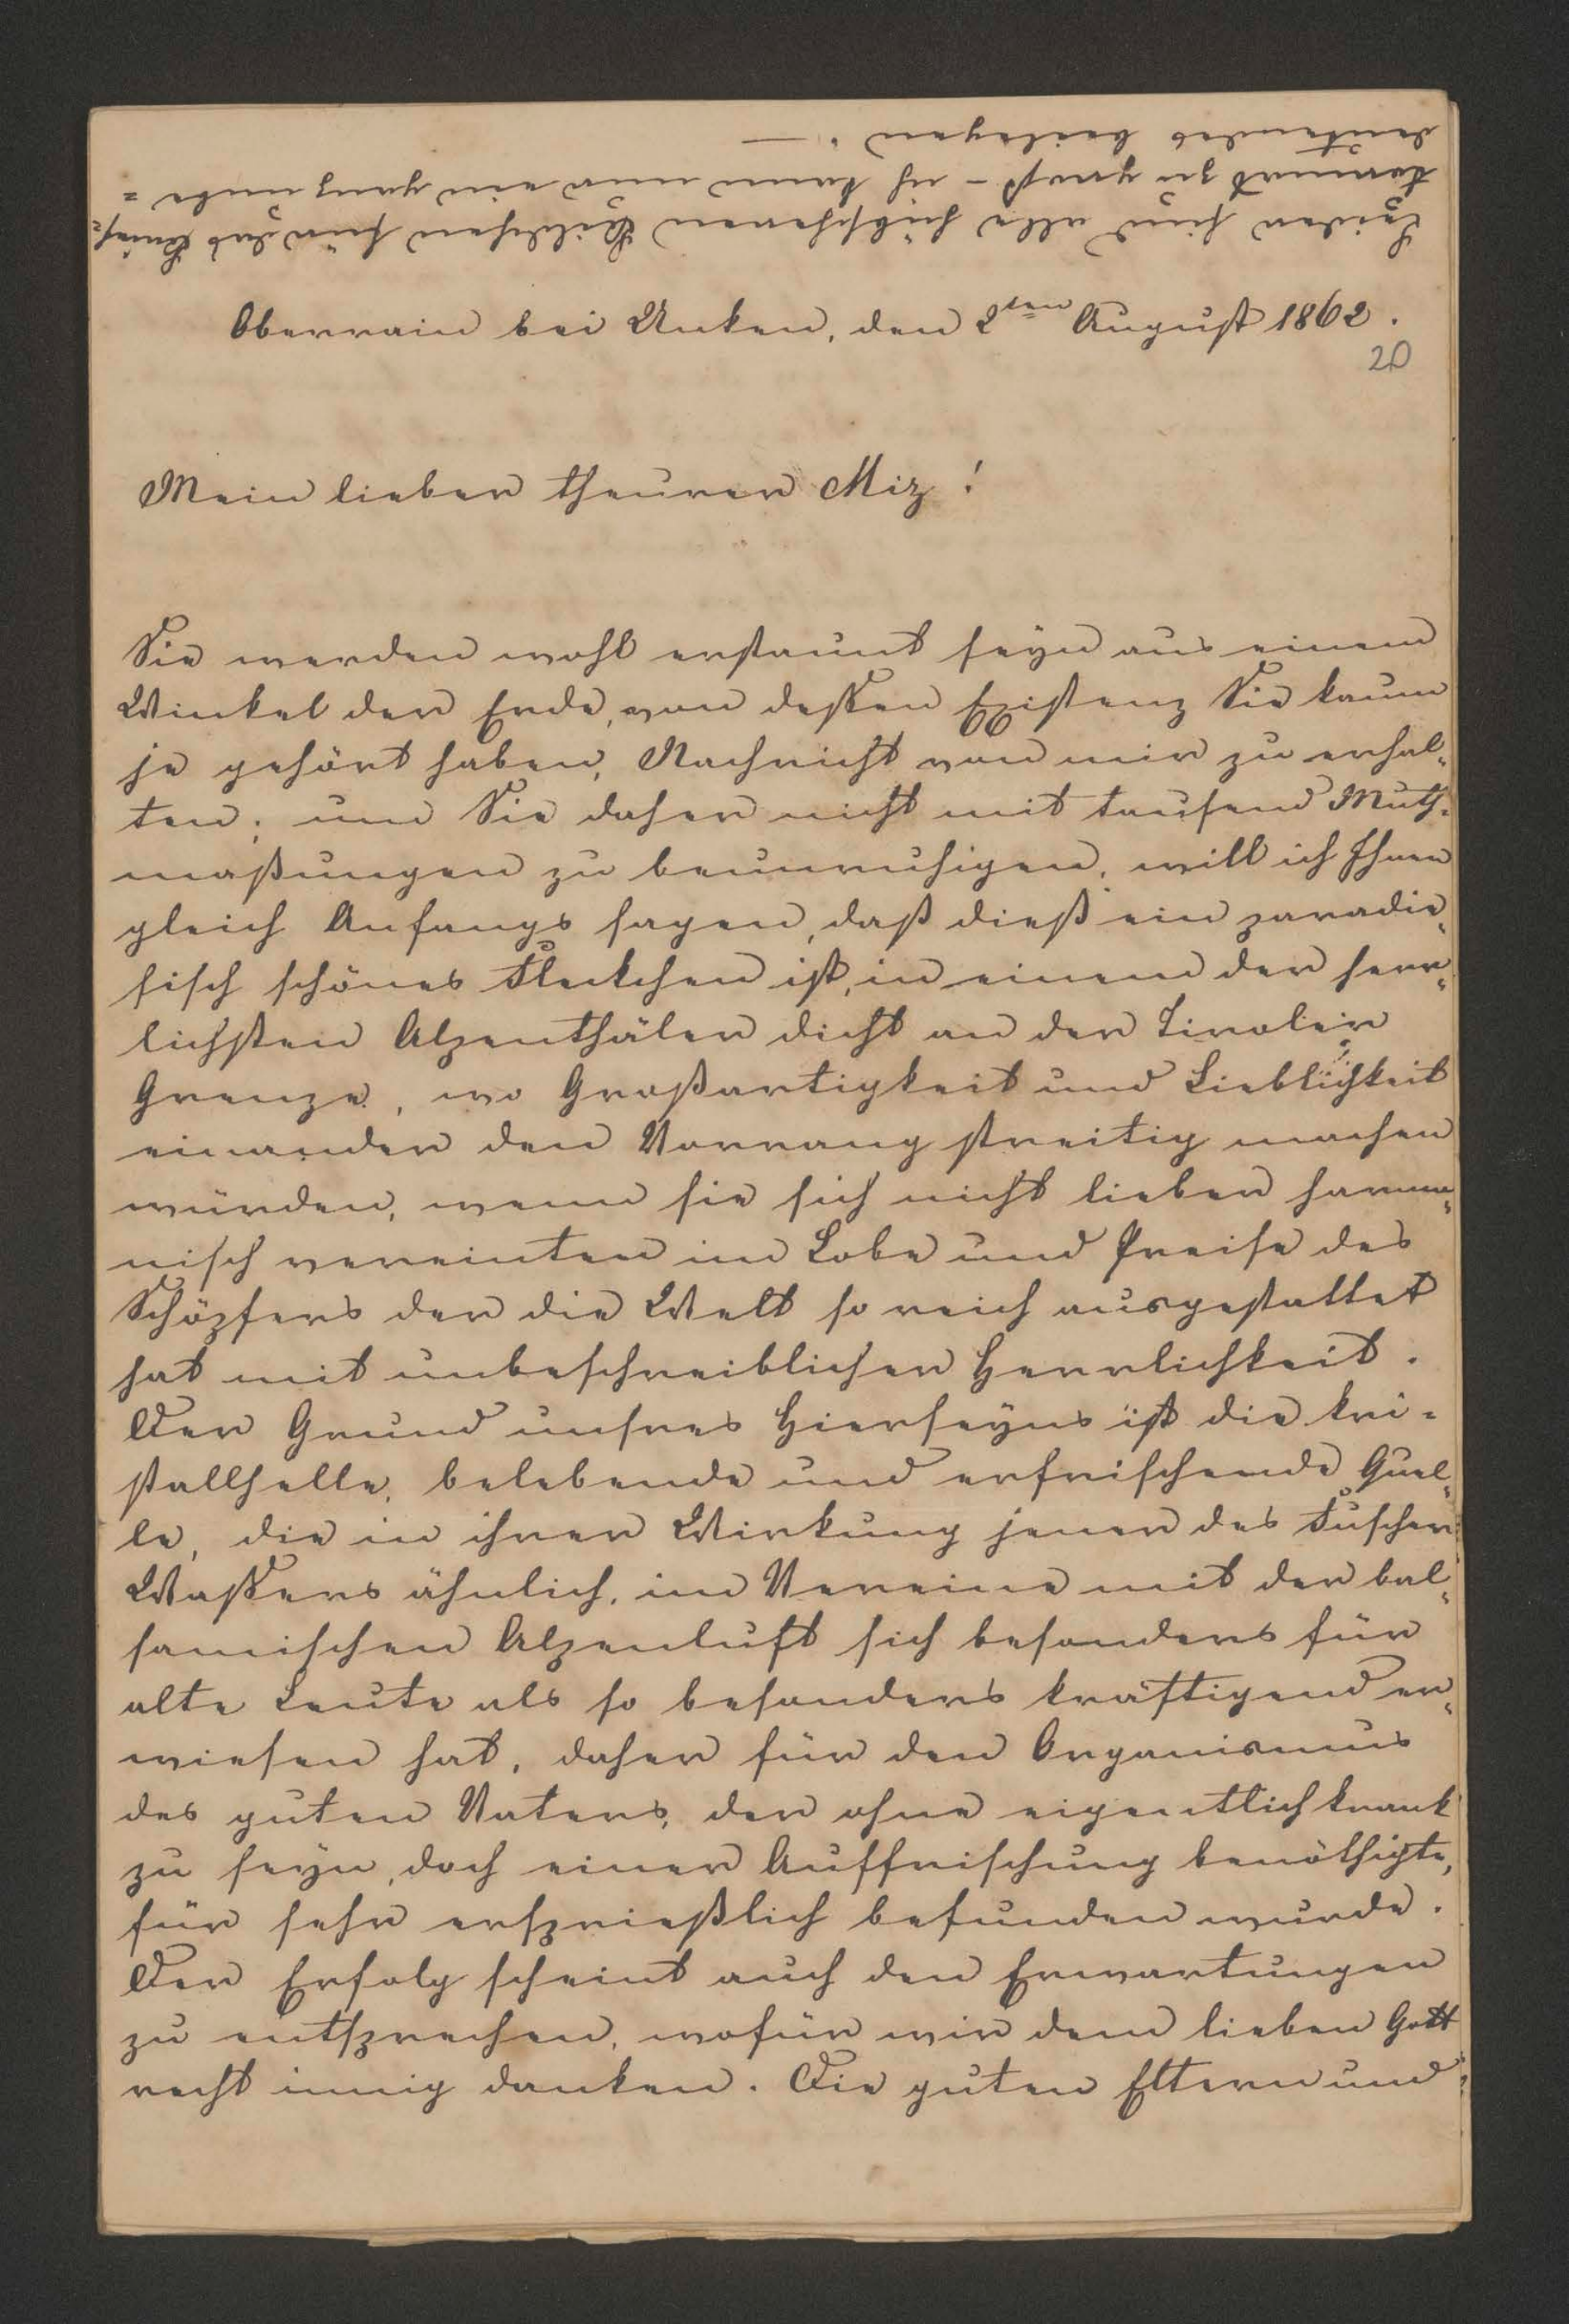 Leider sind alle hübscheren Bildchen für das Brief=
kouvert zu groß – ich kann nur ein ganz unbe=
deutendes beilegen. —
Oberrain bei Unken, den 2ten August 1862.
20
Mein lieber theurer Miz!
Sie werden wohl erstaunt seyn aus einem
Winkel der Erde, von dessen Existenz Sie kaum
je gehört haben, Nachricht von mir zu erhal=
ten; um Sie daher nicht mit tausend Muth=
maßungen zu beunruhigen, will ich Ihnen
gleich Anfangs sagen, daß dieß ein paradie=
sisch schönes Fleckchen ist, in einem der herr=
lichsten Alpenthäler dicht an der Tiroler
Grenze, wo Großartigkeit und Lieblichkeit
einander den Vorrang streitig machen
würden, wenn sie sich nicht lieber harmo=
nisch vereinten im Lobe und Preise des
Schöpfers der die Welt so reich ausgestattet
hat mit unbeschreiblicher Herrlichkeit.
Der Grund unsres Hierseyns ist die kri=
stallhelle, belebende und erfrischende Quel=
le, die in ihrer Wirkung jener des Fuscher
Wassers ähnlich, im Vereine mit der bal=
samischen Alpenluft sich besonders für
alte Leute als so besonders kräftigend er=
wiesen hat, daher für den Organismus
des guten Vaters, der ohne eigentlich krank
zu seyn, doch einer Auffrischung benöthigte,
für sehr ersprießlich befunden wurde.
Der Erfolg scheint auch den Erwartungen
zu entsprechen, wofür wir dem lieben Gott
recht innig danken. Die guten Eltern und